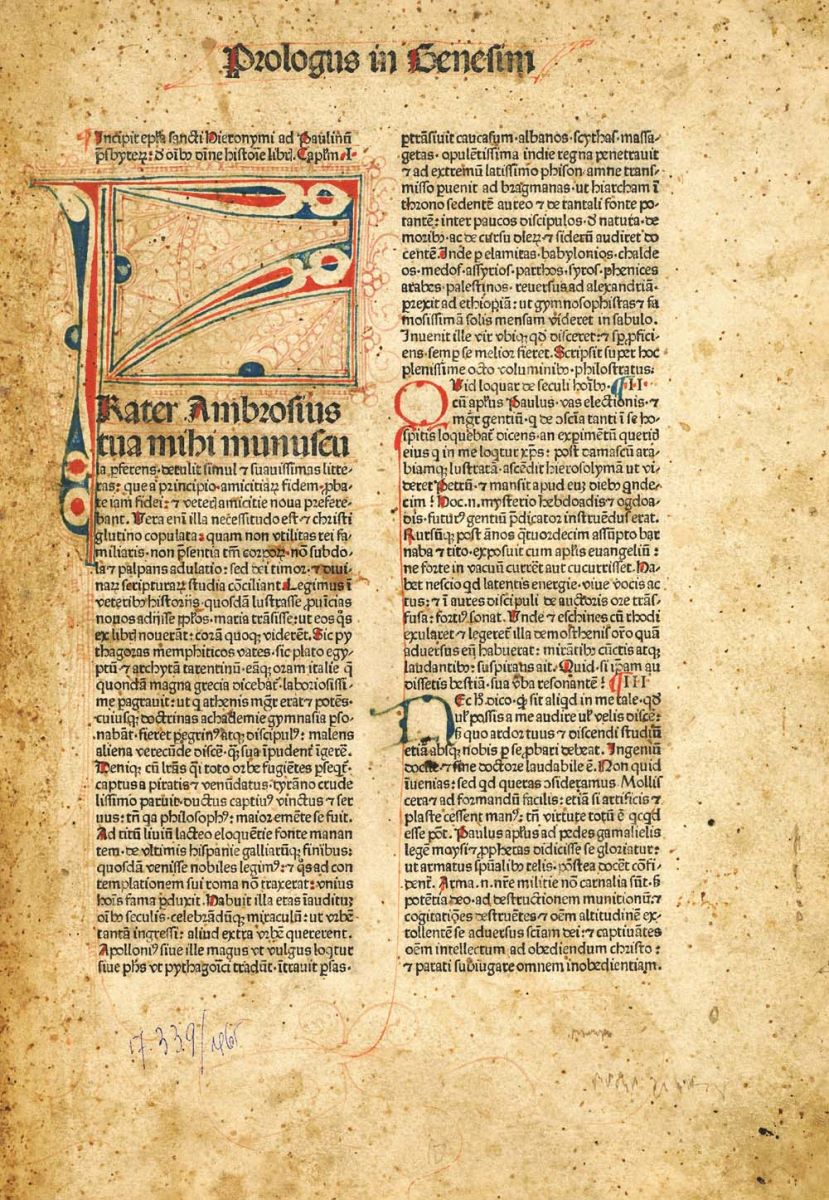 Prologus in Genesim
Incipit epl̄a sancti Hieronymi ad Paulinū
p̄sbyterꝝ: ď oībꝰ dīne histoīe librꝭ. Cap̄lm .I.
FRater Ambrosius
tua mihi munuscu
la ꝑferens· detulit simul ⁊ suauissimas litte-
ras: que a principio· amicitiaꝝ fidem· ꝓba-
te iam fidei: ⁊ veterꝭ amicitie noua prefere-
bant. Vera enī illa necessitudo est· ⁊ christi
glutino copulata: quam non vtilitas rei fa-
miliaris· non p̄sentia tm̄ corpoꝝ· nō subdo-
la ⁊ palpans adulatio: sed dei timor· ⁊ diui-
naꝝ scripturaꝝ studia cōciliant. Legimus ī
veteribꝰ historijs· quosdā lustrasse ꝓuīcias
nouos adijsse pp̄los· maria trāsisse: ut eos q̄s
ex librꝭ nouerāt: corā quoqꝫ viderēt. Sic py
thagoras mēphiticos vates· sic plato egy-
ptū ⁊ archytā tarentinū· eāqꝫ oram italie q̄
quondā magna grecia dicebať· laboriosissi-
me ꝑagrauit: ut q̄ athenis mḡr erat ⁊ potēs·
cuiusqꝫ doctrinas achademie gymnasia ꝑso-
nabāt· fieret peregrinꝰ atqꝫ discipulꝰ: malens
aliena verecūde discē· q̄ꝫ sua īpudenť īgerē.
Deniqꝫ cū lrās q̄si toto orbe fugiētes ꝑseqť·
captus a piratis ⁊ venūdatus· tyrāno crude
lissimo paruit· ductus captiuꝰ vinctus ⁊ ser
uus: tn̄ qa philosophꝰ: maior emēte se fuit.
Ad titū liuiū lacteo eloquētie fonte manan
tem· de vltimis hispanie galliarūqꝫ finibus:
quosdā venisse nobiles legimꝰ: ⁊ q̄s ad con
templationem sui roma nō traxerat: vnius
hoīs fama ꝑduxit. Habuit illa etas īaudituꝫ
oībꝰ seculis· celebrādūqꝫ miraculū: ut vrbē
tantā ingressi: aliud extra vrbē quererent.
Apolloniꝰ siue ille magus vt vulgus loqtur
siue ph̄s vt pythagoīci tradūt· ītrauit ꝑsas·
ꝑtrāsiuit caucasum· albanos· scythas· massa-
getas· opulētissima indie regna penetrauit
⁊ ad extremū latissimo phison amne trans-
misso puenit ad bragmanas· ut hiarcham ī
throno sedentē aureo ⁊ de tantali fonte po-
tantē: inter paucos discipulos· ď natura· de
moribꝰ· ac de cursu dieꝝ· ⁊ siderū audiret do
centē. Inde ꝑ elamitas· babylonios· chalde
os· medos· assyrios· parthos· syros· phenices
arabes· palestinos· reuersus ad alexandriā·
ꝑrexit ad ethiopiā: ut gymnosophistas ⁊ fa
mosissimā solis mensam videret in sabulo.
Inuenit ille vir vbiqꝫ qď disceret: ⁊ sꝑ ꝓfici-
ens· semꝑ se melior fieret. Scripsit super hoc
plenissime octo voluminibꝰ· philostratus.
QUid loquar de seculi hoībꝰ. II.
cū apl̄us Paulus· vas electionis· ⁊
mḡr gentiū· q̄ de ꝯscīa tanti ī se ho-
spitis loquebať dicens· an exꝑimētū querꝭ
eius q̄ in me loqtur xp̄s: post damascū ara-
biamqꝫ lustratā· ascēdit hierosolymā ut vi-
deret Petrū· ⁊ mansit apud euꝫ diebꝰ qnde-
cim! Hoc .n. mysterio hebdoadis ⁊ ogdoa-
dis· futurꝰ gentiū p̄dicator instruēdus erat.
Rursūqꝫ post ānos q̄tuordecim assūpto bar
naba ⁊ tito· exposuit cum apl̄is euangeliū:
ne forte in vacuū currēt aut cucurrisset. Ha-
bet nescio qď latentis energie· viue vocis ac
tus: ⁊ ī aures discipuli de auctoris ore trās-
fusa: fortiꝰ sonat. Unde ⁊ eschines cū rhodi
exularet ⁊ legereť illa demosthenis oro quā
aduersus eū habuerat: mirātibꝰ cūctis atqꝫ
laudantibꝰ: suspirans ait. Quid· si ip̄am au
dissetis bestiā· sua ṽba resonantē! III
NEc h̄ dico· q̄ sit aliqd in me tale· qď
vel possis a me audire vel velis discē:
sꝫ quo ardor tuus ⁊ discendi studiū
etiā absqꝫ nobis ꝑ se ꝓbari debeat. Ingeniū
docile· ⁊ sine doctore laudabile ē. Non quid
īuenias: sed qd queras ꝯsideramus. Mollis
cera ⁊ ad formandū facilis: etiā si artificis ⁊
plaste cessent manꝰ: tn̄ virtute totū ē qcqd
esse pōt. Paulus apl̄us ad pedes gamalielis
legē moysi ⁊ ꝓphetas didicisse se gloriatur:
ut armatus spūalibꝰ telis· postea docēt cōfi-
denť. Arma .n. nr̄e militie nō carnalia sūt· sꝫ
potētia deo· ad destructionem munitionū: ⁊
cogitatiōes destruētes ⁊ oēm altitudinē ex-
tollentē se aduersus sciam dei: ⁊ captiuātes
oēm intellectum ad obediendum christo:
⁊ parati subiugare omnem inobedientiam.
17.339/1965